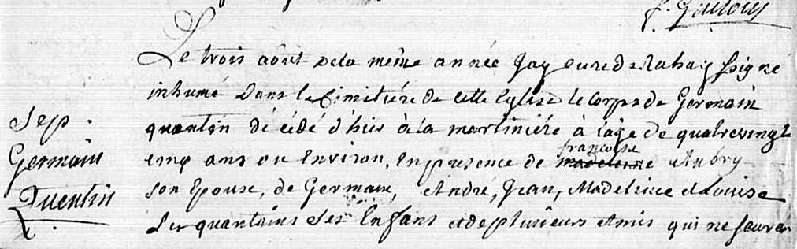 f. Gallois
Le trois août de la même année J'ay curé de rahay soigné
inhumé dans le Cimetiére de cette Eglise le Corps de Germain
Sep.
quantin décédé d'hier à la martiniére à l'age de quatrevingt
Germain
cinq ans ou environ, en presence de françoise madelenne Aubry
Quentin
son Epouse, de Germain, André, Jean, Madeleine et Louise
les quantins ses Enfans et de plusieurs Amis qui ne sçavent